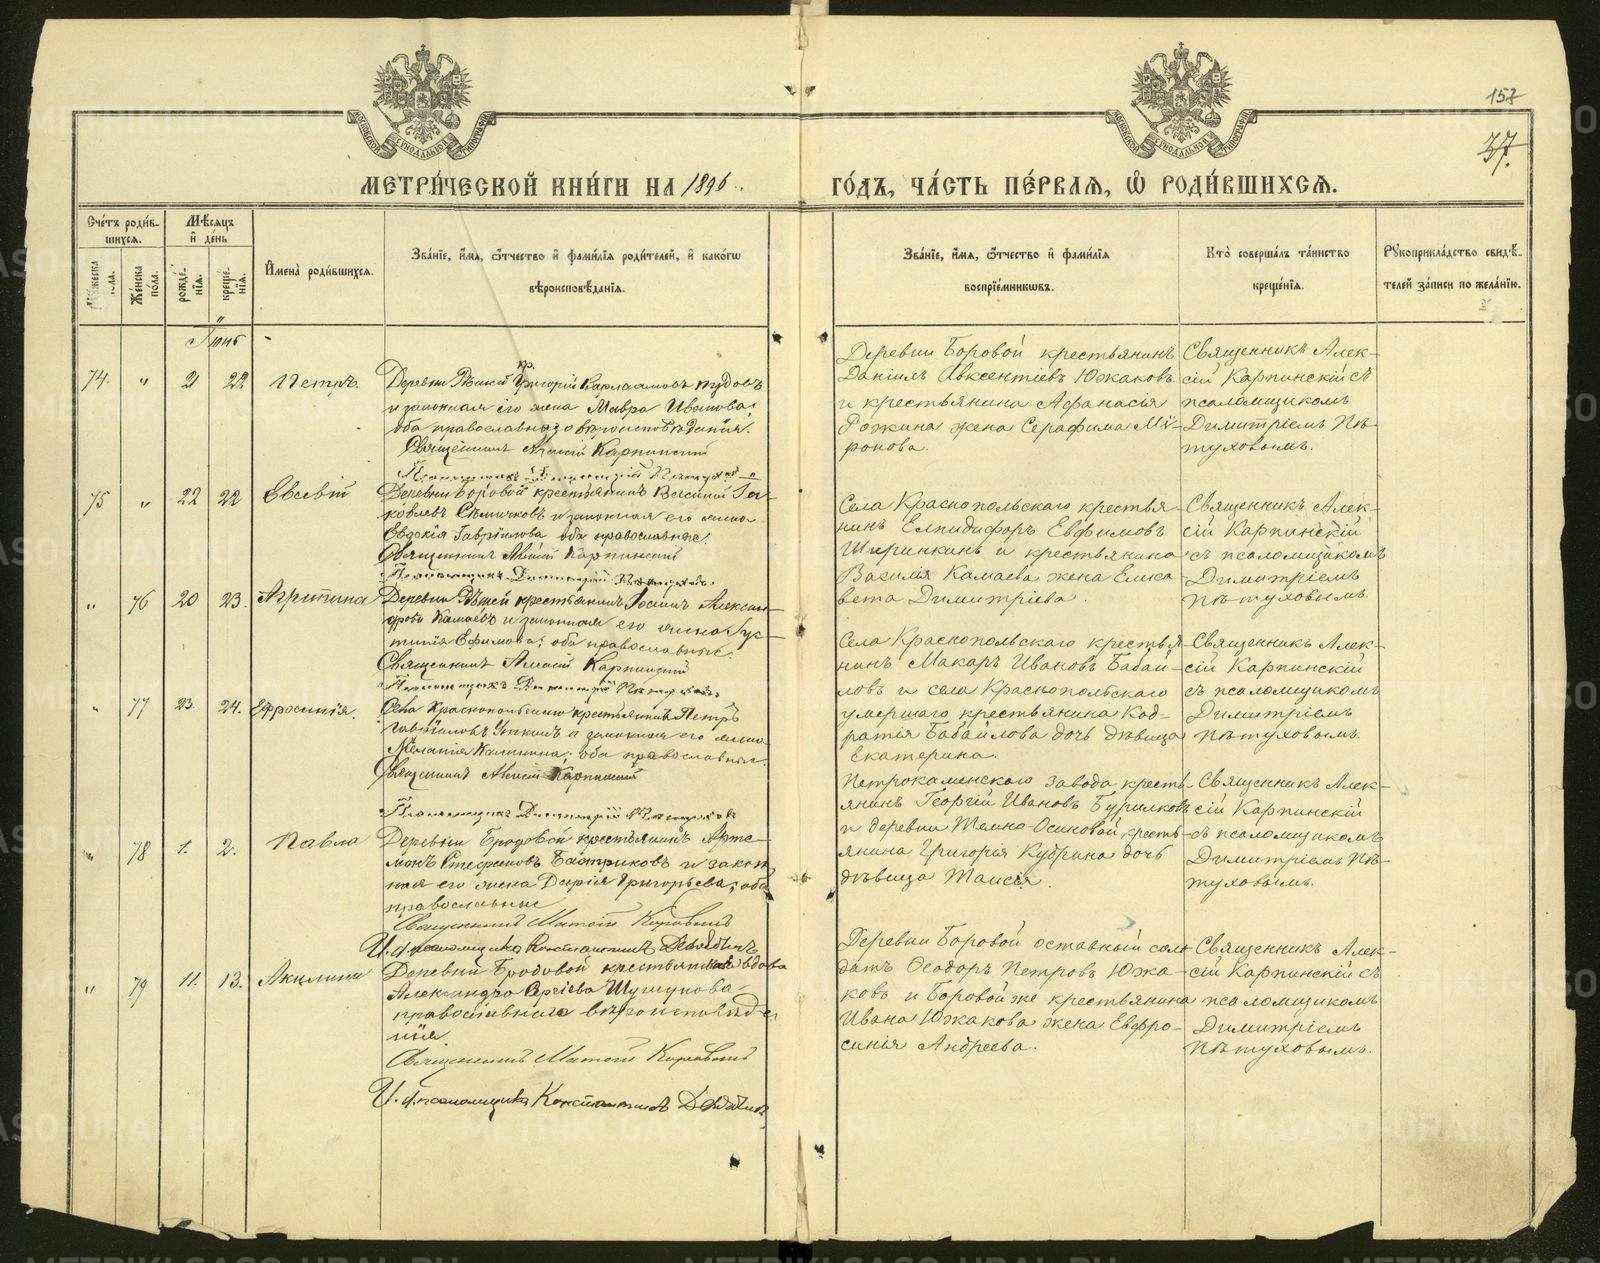 157
37.
МЕТРИ́ЧЕСКОЙ КНИ́ГИ НА 1896.
ГО́ДЪ, ЧА́СТЬ ПЕ́РВАЯ, Ѡ҆ РОДИ́ВШИХСЯ.
Сче́тъ роди́вшихся.
Му́жеска по́ла.
Же́нска по́ла.
Мѣ́сяцъ и҆ де́нь
рожде́нїя.
креще́нїя.
И҆мена̀ роди́вшихся.
Зва́нїе, и҆́мя, ѻ҆́тчество и҆ фами́лїя роди́телей, и҆ како́гѡ
вѣроисповѣ́данїя.
Зва́нїе, и҆́мя, ѻ҆́тчество и҆ фами́лїя
воспрїе́мникѡвъ.
Кто̀ соверша́лъ та́инство
креще́нїя.
Рꙋкоприкла́дство свидѣ́телей за́писи по жела́нїю.
Іюнь
74. " 21 22 Петръ.
Деревни Рѣшей кр. Григорій Варлаамовъ Пудовъ
и законная его жена Мавра Иванова;
оба православнаго вѣроисповѣданія.
Священникъ Алексій Карпинскій
Псаломщикъ Димитрій Пѣтуховъ
Деревни Боровой крестьянинъ
Даніилъ Авксентіевъ Южаковъ
и крестьянина Афанасія
Рожина жена Серафима Миронова.
Священникъ Алексій Карпинскій съ
псаломщикомъ
Димитріемъ Пѣтуховымъ.
75 " 22 22 Евсевій
Деревни Боровой крестьянинъ Василій Іаковлевъ Сѣтчиковъ и законная его жена
Евдокія Гавріилова оба православные.
Священникъ Алексій Карпинскій
Псаломщикъ Димитрій Пѣтуховъ.
Села Краснопольскаго крестьянинъ Елпидифоръ Евфимовъ
Ширинкинъ и крестьянина
Василія Камаева жена Елисавета Димитріева.
Священникъ Алексій Карпинскій
съ псаломщикомъ
Димитріемъ
Пѣтуховымъ.
" 76 20 23. Агрипина
Деревни Рѣшей крестьянинъ Іосифъ Александровъ Камаевъ и законная его жена
Ефимова; оба православные.
Священникъ Алексій Карпинскій
Псаломщикъ Димитрій Пѣтуховъ.
Села Краснопольскаго крестьянинъ Макаръ Ивановъ Бабайловъ и села Краснопольскаго
умершаго крестьянина Кодратія Бабайлова дочь дѣвица
Екатерина.
Священникъ Алексій Карпинскій
съ псаломщикомъ
Димитріемъ
Пѣтуховымъ.
" 77 23. 24. Ефросинія.
Села Краснопольскаго крестьянинъ Петръ
Гавріиловъ Уткинъ и законная его жена
Меланія Калинина; оба православные.
Священникъ Алексій Карпинскій
Псаломщикъ Димитрій Пѣтуховъ
Петрокаменскаго завода крестьянинъ Георгій Ивановъ Бурилковъ
и деревни Темно-Осиновой, крестьянина Григорія Кубрина дочь
дѣвица Таисія.
Священникъ Алексій Карпинскій
съ псаломщикомъ
Димитріемъ Пѣтуховымъ.
" 78 1. 2. Павла
Деревни Бродовой крестьянинъ Артемонъ Стефановъ Бастриковъ и законная его жена Дарія Григорьева; оба
православные
Священникъ Матѳій Коровинъ
И. д. псаломщика Константинъ
Деревни Боровой отставный солдатъ Ѳеодоръ Петровъ Южаковъ и Боровой же крестьянина
Ивана Южакова жена Евфросинія Андреева.
Священникъ Алексій Карпинскій съ
псаломщикомъ
Димитріемъ
Пѣтуховымъ.
" 79 11. 13. Акилина
Деревни Бродовой крестьянская вдова
Александра Сергіева Шушунова
православнаго вѣроисповѣданія.
Священникъ Матѳій Коровинъ
И. д. псаломщика Константинъ